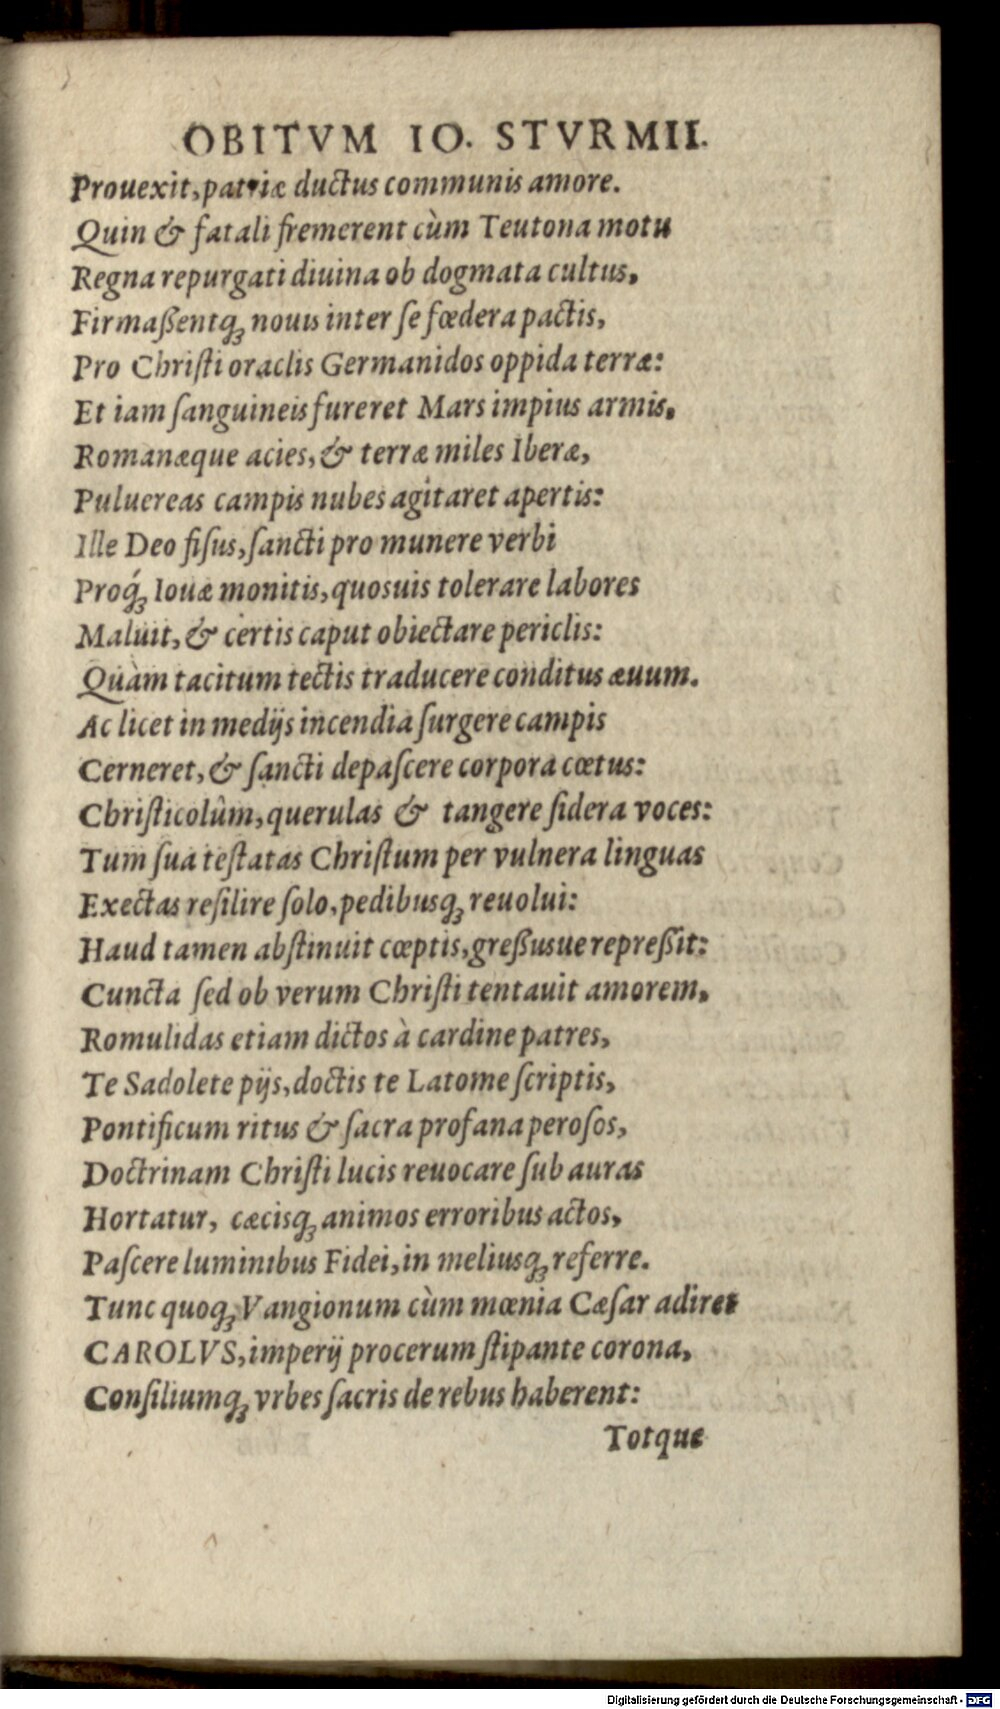 OBITVM IO. STVRMII.
Prouexit, patriæ ductus communis amore.
Quin & fatali fremerent cùm Teutona motu
Regna repurgati diuina ob dogmata cultus,
Firmaßentq́ꝫ nouis inter ſe fœdera pactis,
Pro Chriſti oraclis Germanidos oppida terræ:
Et iam ſanguineis fureret Mars impius armis,
Romanæque acies, & terræ miles Iberæ,
Puluereas campis nubes agitaret apertis:
Ille Deo fiſus, ſancti pro munere verbi
Proq́ꝫ Iouæ monitis, quosuis tolerare labores
Maluit, & certis caput obiectare periclis:
Quàm tacitum tectis traducere conditus æuum.
Ac licet in medijs incendia ſurgere campis
Cerneret, & ſancti depaſcere corpora cœtus:
Chriſticolûm, querulas & tangere ſidera voces:
Tum ſua teſtatas Chriſtum per vulnera linguas
Exectas reſilire ſolo, pedibusqꝫ reuolui:
Haud tamen abſtinuit cœptis, greßusue repreßit:
Cuncta ſed ob verum Chriſti tentauit amorem,
Romulidas etiam dictos à cardine patres,
Te Sadolete pijs, doctis te Latome ſcriptis,
Pontificum ritus & ſacra profana peroſos,
Doctrinam Chriſti lucis reuocare ſub auras
Hortatur, cæcisqꝫ animos erroribus actos,
Paſcere luminibus Fidei, in meliusqꝫ referre.
Tunc quoqꝫ Vangionum cùm mœnia Cæſar adiret
CAROLVS, imperij procerum ſtipante corona,
Conſiliumqꝫ vrbes ſacris de rebus haberent:
Totque
Digitalisierung gefördert durch die Deutsche Forschungsgemeinschaft - DFG